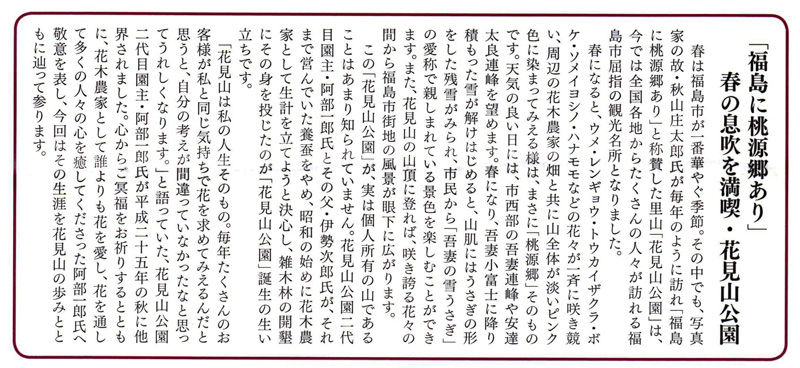 「福島に桃源郷あり」
春の息吹を満喫・花見山公園
春は福島市が一番華やぐ季節。その中でも、写真
家の故・秋山庄太郎氏が毎年のように訪れ「福島
に桃源郷あり」と称賛した里山「花見山公園」は、
今では全国各地からたくさんの人々が訪れる福
島市屈指の観光名所となりました。
春になると、ウメ・レンギョウ・トウカイザクラ・ボ
ケ・ソメイヨシノ・ハナモモなどの花々が一斉に咲き競
い、周辺の花木農家の畑と共に山全体が淡いピンク
色に染まってみえる様は、まさに「桃源郷」そのもの
です。天気の良い日には、市西部の吾妻連峰や安達
太良連峰を望めます。春になり、吾妻小富士に降り
積もった雪が解けはじめると、山肌にはうさぎの形
をした残雪がみられ、市民から「吾妻の雪うさぎ」
の愛称で親しまれている景色を楽しむことができ
ます。また、花見山の山頂に登れば、咲き誇る花々の
間から福島市街地の風景が眼下に広がります。
この「花見山公園」が、実は個人所有の山である
ことはあまり知られていません。花見山公園二代
目園主・阿部一郎氏とその父・伊勢次郎氏が、それ
まで営んでいた養蚕をやめ、昭和の始めに花木農
家として生計を立てようと決心し、雑木林の開墾
にその身を投じたのが「花見山公園」誕生の生い
立ちです。
「花見山は私の人生そのもの。毎年たくさんのお
客様が私と同じ気持ちで花を求めてみえるんだと
思うと、自分の考えが間違っていなかったなと思っ
てうれしくなります。」と語っていた、花見山公園
二代目園主・阿部一郎氏が平成二十五年の秋に他
界されました。心からご冥福をお祈りするととも
に、花木農家として誰よりも花を愛し、花を通し
て多くの人々の心を癒してくださった阿部一郎氏へ
敬意を表し、今回はその生涯を花見山の歩みとと
もに辿って参ります。